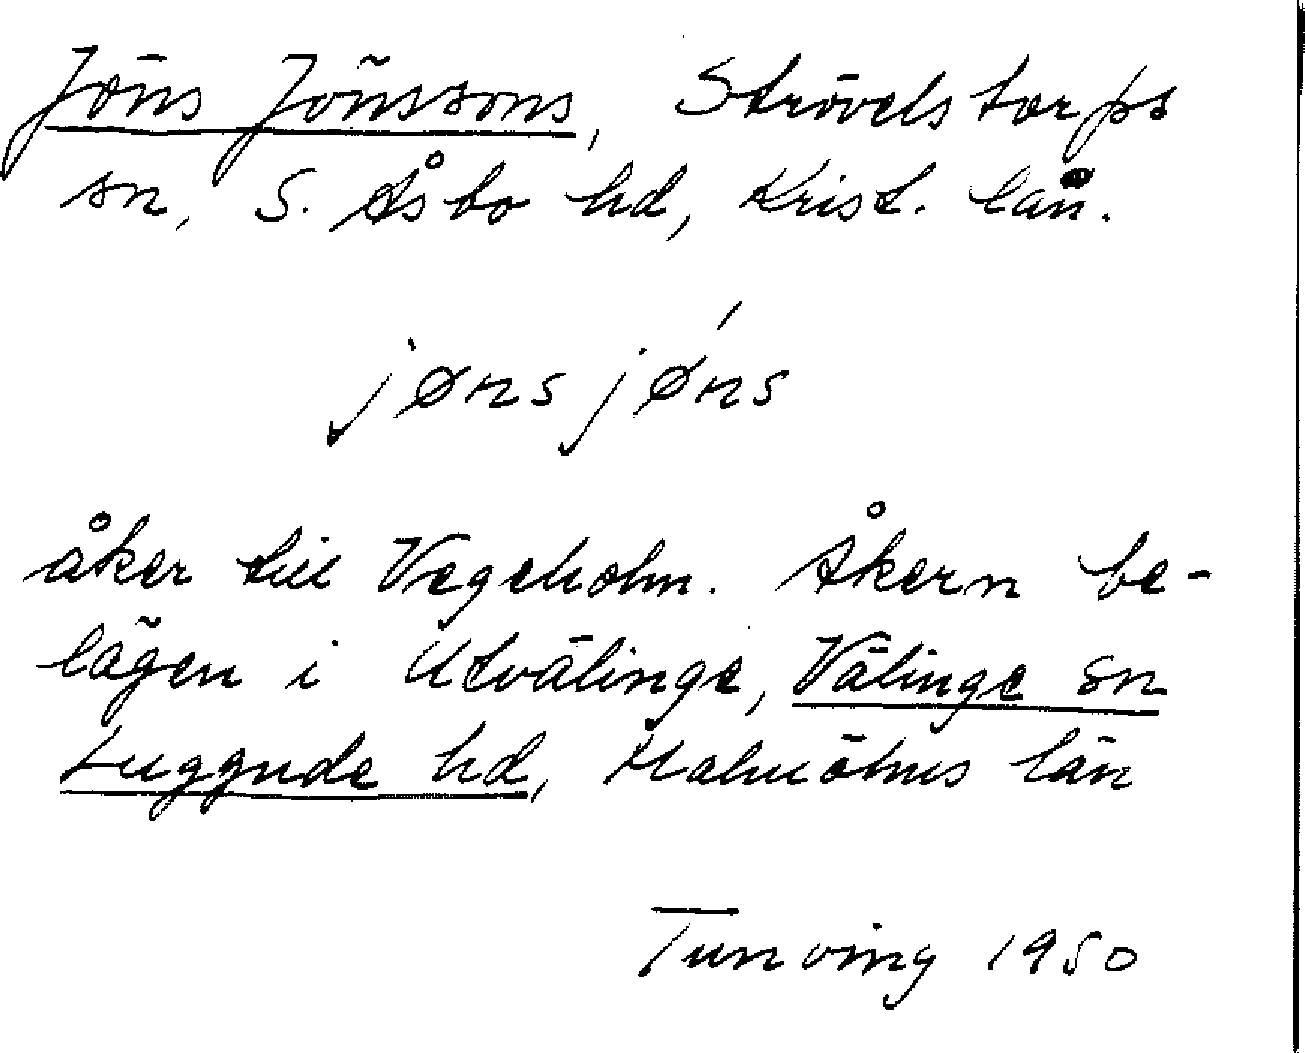 Jöns Jönssons, Strövelstorps
sn, S. Åsbo hd, Krist. län.
jønsjǿns
åker till Vegeholm. Åkern be-
lägen i Utvälinge, Välinge sn
Luggude hd, Malmöhus län
Tunving 1950